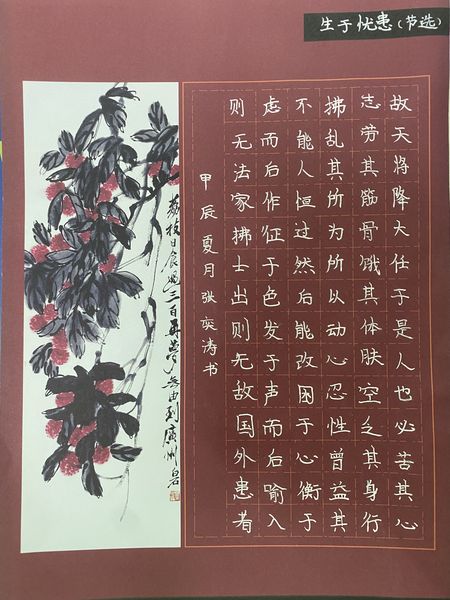 生于忧患(节选)
故天将降大任于是人也必苦其心
志劳其筋骨饿其体肤空乏其身行
拂乱其所为所以动心忍性曾益其
不能人恒过然后能改困于心衡于
虑而后作征于色发于声而后喻入
则无法家拂士出则无敌国外患者
甲辰夏月张奕涛书
荔枝日食过三百再梦无由到廣州白石